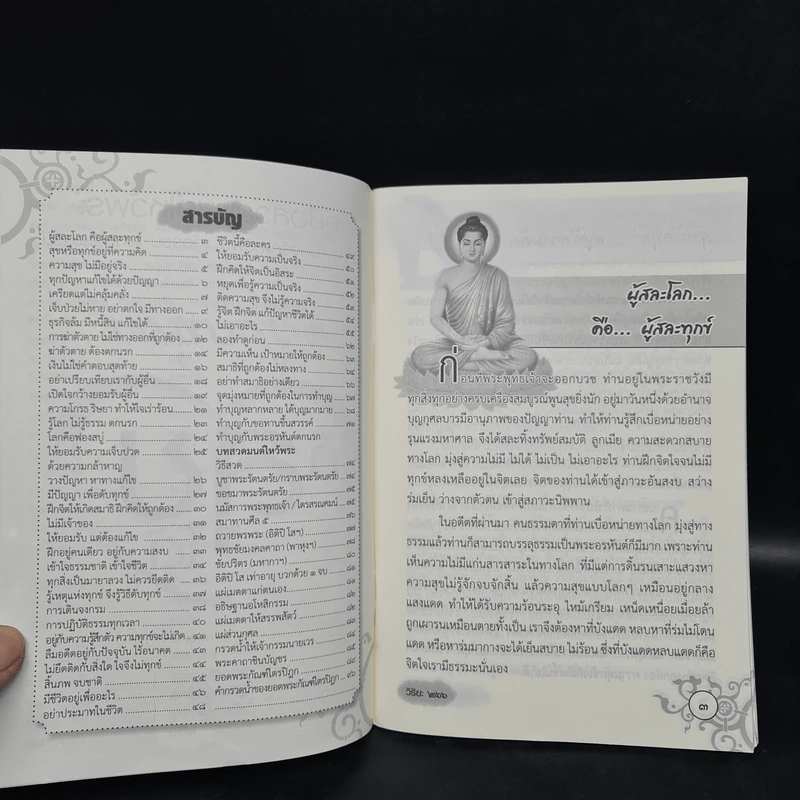 สารบัญ
ผู้สละโลก คือผู้สละทุกข์ ๓
สุขหรือทุกข์อยู่ที่ความคิด ๔
ความสุข ไม่มีอยู่จริง ๕
ทุกปัญหาแก้ไขได้ด้วยปัญญา ๖
เครียดแต่ไม่คลุ้มคลั่ง ๗
เจ็บป่วยไม่หาย อย่าตกใจ มีทางออก ๙
ธุรกิจล้ม มีหนี้สิน แก้ไขได้ ๑๐
การฆ่าตัวตาย ไม่ใช่ทางออกที่ถูกต้อง ๑๒
ฆ่าตัวตาย ต้องตกนรก ๑๔
เงินไม่ใช่คำตอบสุดท้าย ๑๖
อย่าเปรียบเทียบเรากับผู้อื่น ๑๘
เปิดใจกว้างยอมรับผู้อื่น ๒๐
ความโกรธ ริษยา ทำให้ใจเร่าร้อน ๒๑
รู้โลก ไม่รู้ธรรม ตกนรก ๒๓
โลกคือฟองสบู่ ๒๔
ให้ยอมรับความเจ็บปวด ๒๕
ด้วยความกล้าหาญ
วางปัญหา หาทางแก้ไข ๒๖
มีปัญญา เพื่อดับทุกข์ ๒๘
ฝึกจิตให้เกิดสมาธิ ฝึกคิดให้ถูกต้อง ๓๐
ไม่มีเจ้าของ ๓๑
ให้ยอมรับ แต่ต้องแก้ไข ๓๒
ฝึกอยู่คนเดียว อยู่กับความสงบ ๓๓
เข้าใจธรรมชาติ เข้าใจชีวิต ๓๕
ทุกสิ่งเป็นมายาลวง ไม่ควรยึดติด
รู้เหตุแห่งทุกข์ จึงรู้วิธีดับทุกข์
การเดินจงกรม
การปฏิบัติธรรมทุกเวลา
อยู่กับความรู้สึกตัว ความทุกข์จะไม่เกิด
ลืมอดีตอยู่กับปัจจุบัน ไร้อนาคต
ไม่ยึดติดกับสิ่งใด ใจจึงไม่ทุกข์
สิ้นภพ จบชาติ ๔๕
มีชีวิตอยู่เพื่ออะไร ๔๖
อย่าประมาทในชีวิต ๔๘
ชีวิตนี้คือละคร ๔๙
ให้ยอมรับความเป็นจริง ๕๐
ฝึกคิดให้จิตเป็นอิสระ ๕๑
หยุดเพื่อรู้ความเป็นจริง
ติดความสุข จึงไม่รู้ความจริง
รู้จิต ฝึกจิต แก้ปัญหาชีวิตได้
ไม่เอาอะไร ๕๕
ลองทำดูก่อน ๖๒
มีความเห็น เป้าหมายให้ถูกต้อง ๖๓
สมาธิที่ถูกต้องไม่หลงทาง ๖๔
อย่าทำสมาธิอย่างเดียว ๖๖
จุดมุ่งหมายที่ถูกต้องในการทำบุญ
ทำบุญหลากหลาย ได้บุญมากมาย
ทำบุญกับขอทานขึ้นสวรรค์
ทำบุญกับพระอรหันต์ตกนรก
บทสวดมนต์ไหว้พระ
วิธีสวด ๗๔
บูชาพระรัตนตรัย/กราบพระรัตนตรัย ๗๔
ขอขมาพระรัตนตรัย ๗๕
นมัสการพระพุทธเจ้า/ไตรสรณคมน์
สมาทานศีล ๕
ถวายพรพระ (อิติปิ โสฯ)
พุทธชัยมงคลคาถา (พาหุงฯ)
ชัยปริตร (มหากาฯ)
อิติปิ โส เท่าอายุ บวกด้วย ๑ จบ
แผ่เมตตาแก่ตนเอง
อธิษฐานอโหสิกรรม
แผ่เมตตาให้สรรพสัตว์
แผ่ส่วนกุศล
กรวดน้ำให้เจ้ากรรมนายเวร
พระคาถาชินบัญชร
ยอดพระกัณฑ์ไตรปิฎก
คำกรวดน้ำของยอดพระกัณฑ์ไตรปิฎก ๙๖
ผู้สละโลก...
คือ... ผู้สละทุกข์
ก่อนที่พระพุทธเจ้าจะออกบวช ท่านอยู่ในพระราชวังมี
ทุกสิ่งทุกอย่างครบเครื่องสมบูรณ์พูนสุขยิ่งนัก อยู่มาวันหนึ่งด้วยอำนาจ
บุญกุศลบารมีอานุภาพของปัญญาท่าน ทำให้ท่านรู้สึกเบื่อหน่ายอย่าง
รุนแรงมหาศาล จึงได้สละทิ้งทรัพย์สมบัติ ลูกเมีย ความสะดวกสบาย
ทางโลก มุ่งสู่ความไม่มี ไม่ได้ ไม่เป็น ไม่เอาอะไร ท่านฝึกจิตใจจนไม่มี
ทุกข์หลงเหลืออยู่ในจิตเลย จิตของท่านได้เข้าสู่ภาวะอันสงบ สว่าง
ร่มเย็น ว่างจากตัวตน เข้าสู่สภาวะนิพพาน
ในอดีตที่ผ่านมา คนธรรมดาที่ท่านเบื่อหน่ายทางโลก มุ่งสู่ทาง
ธรรมแล้วท่านก็สามารถบรรลุธรรมเป็นพระอรหันต์ก็มีมาก เพราะท่าน
เห็นความไม่มีแก่นสารสาระในทางโลก ที่มีแต่การดิ้นรนเสาะแสวงหา
ความสุขไม่รู้จักจบจักสิ้น แล้วความสุขแบบโลกๆ เหมือนอยู่กลาง
แสงแดด ทำให้ได้รับความร้อนระอุ ไหม้เกรียม เหน็ดเหนื่อยเมื่อยล้า
ถูกเผารนเหมือนตายทั้งเป็น เราจึงต้องหาที่บังแดด หลบหาที่ร่มไม้โดน
แดด หรือหาร่มมากางจะได้เย็นสบาย ไม่ร้อน ซึ่งที่บังแดดหลบแดดก็คือ
จิตใจเรามีธรรมะนั่นเอง
วิริยะ ๒๖๖
๓